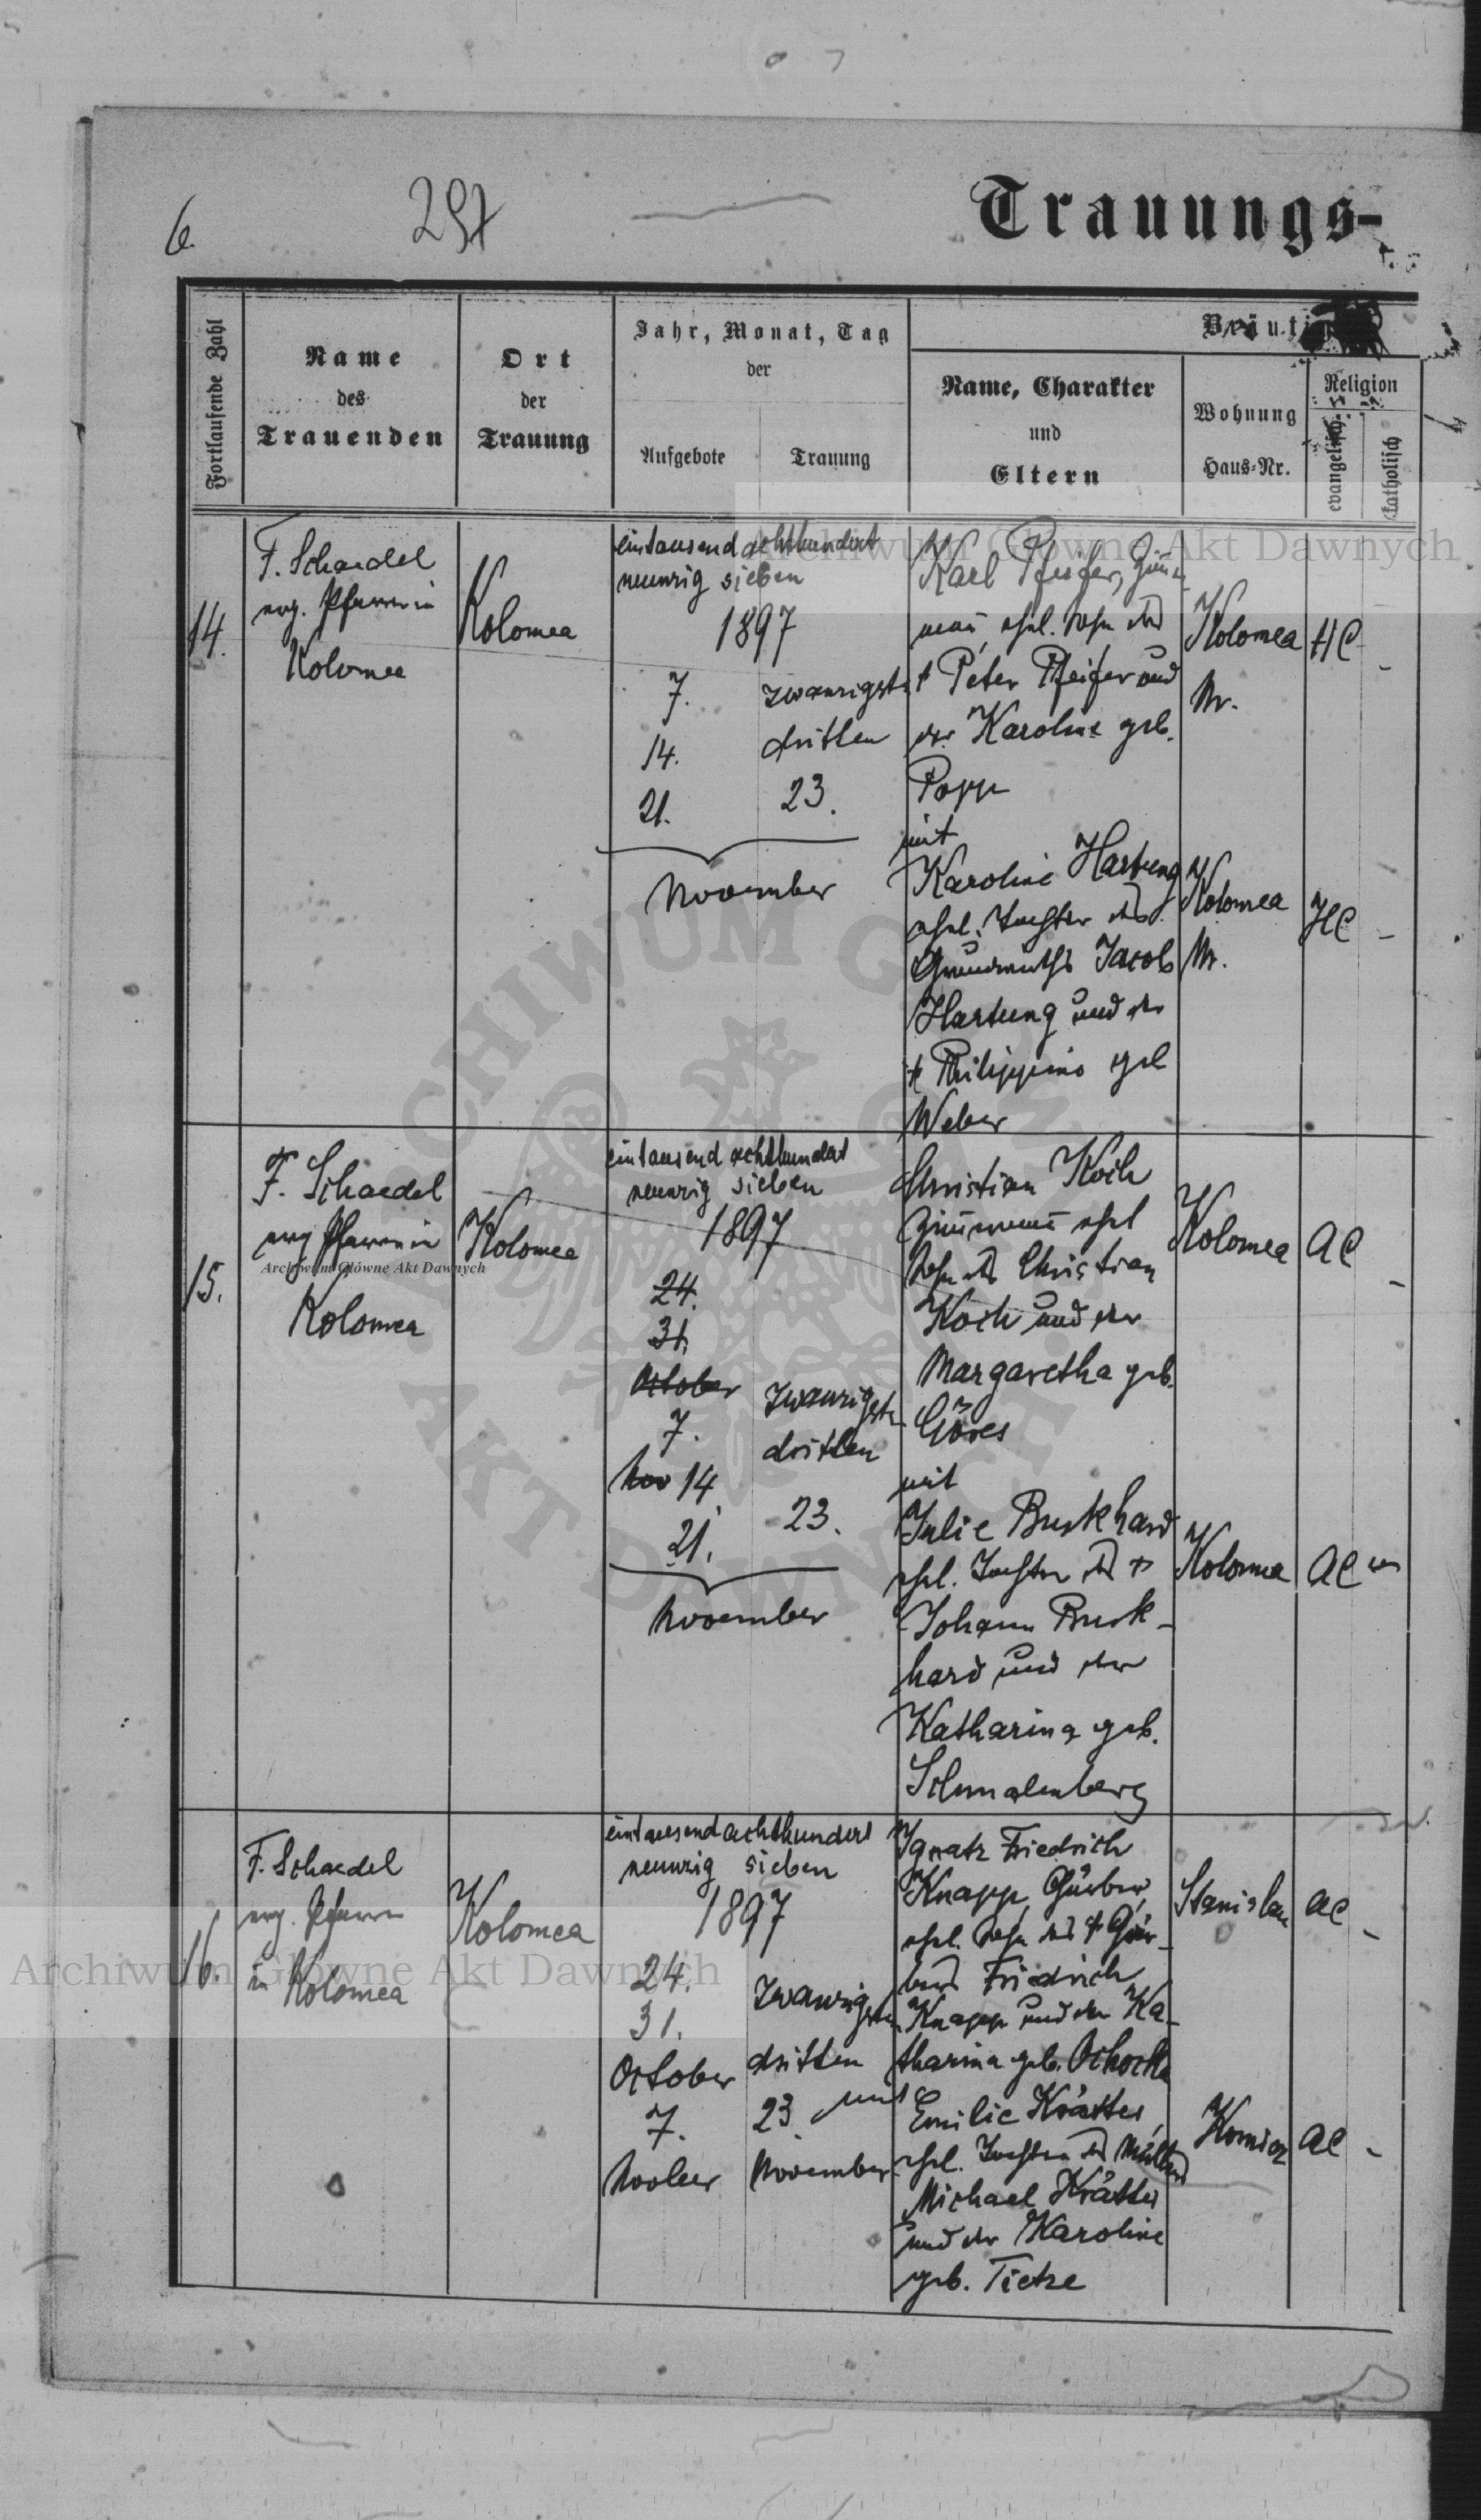 6.
297
Trauungs-
Fortlaufende Zahl
Name
des
Trauenden
Ort
der
Trauung
Jahr, Monat, Tag
der
Aufgebote
Trauung
Bräuti
Name, Charakter
und
Eltern
Wohnung
Haus-Nr.
Religion
evangelisch
katholisch
14.
F. Schaedel
evg. Pfarrer in
Kolomea
Kolomea
eintausend achthundert
neunzig sieben
1897
7.
14.
21.
November
zwanzigsten
dritten
23.
Karl Pfeifer, Zim̄er-
man̄, ehel. Sohn des
† Peter Pfeifer und
der Karoline geb.
Popp
mit
Karoline Hartung
ehel. Tochter des
Grundwirths Jacob
Hartung und der
† Philippine geb
Weber
Kolomea
Nr.
HC -
Kolomea
Nr.
HC -
15.
F. Schaedel
evg Pfarrer in
Kolomea
Kolomea
eintausend achthundert
neunzig sieben
1897
24.
31.
October
7.
Nov 14
21.
November
zwanzigsten
dritten
23.
Christian Koch
Zim̄erman̄ ehel
Sohn des Christian
Koch und der
Margaretha geb.
Göres
mit
Julie Burkhard
ehel. Tochter des †
Johann Burk-
hard und der
Katharina geb.
Schmalenberg
Kolomea
AC -
Kolomea
AC -
16.
F. Schaedel
evg. Pfarrer
in Kolomea
Kolomea
eintausend achthundert
neunzig sieben
1897
24.
31.
October
7.
zwanzigsten
dritten
23.
November
Ignatz Friedrich
Knapp, Gärber,
ehel. Sohn des † Gär-
bers Friedrich
Knapp und der Ka-
tharina geb.
mit
Emilie Krätter,
ehel. Tochter des Müllers
Michael Krätter
und der Karoline
geb. Tietze
Stanislau
AC -
AC -
Archiwum Główne Akt Dawnych
Archiwum Główne Akt Dawnych
Archiwum Główne Akt Dawnych